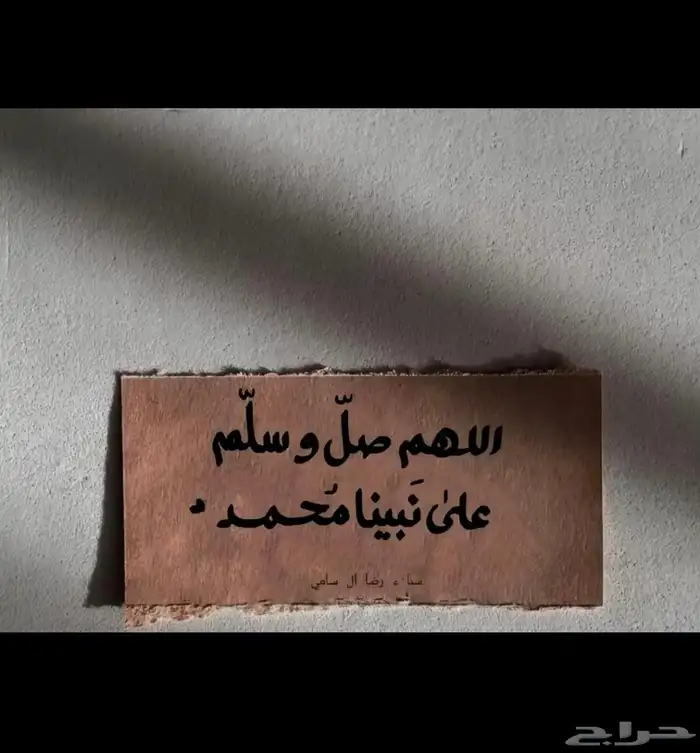 اللهم صلّ و سلّم
علىٰ نَبينا مُحمد .
سناء رضا آل سامي
حراج